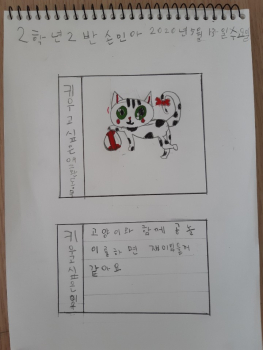 2학년2반 손민아 2020년 5월 13일 수요일
키우고 싶은 애완동물
고양이와 함께 공놀
이를 하면 재미있을거
같아요
키우고 싶은 이유